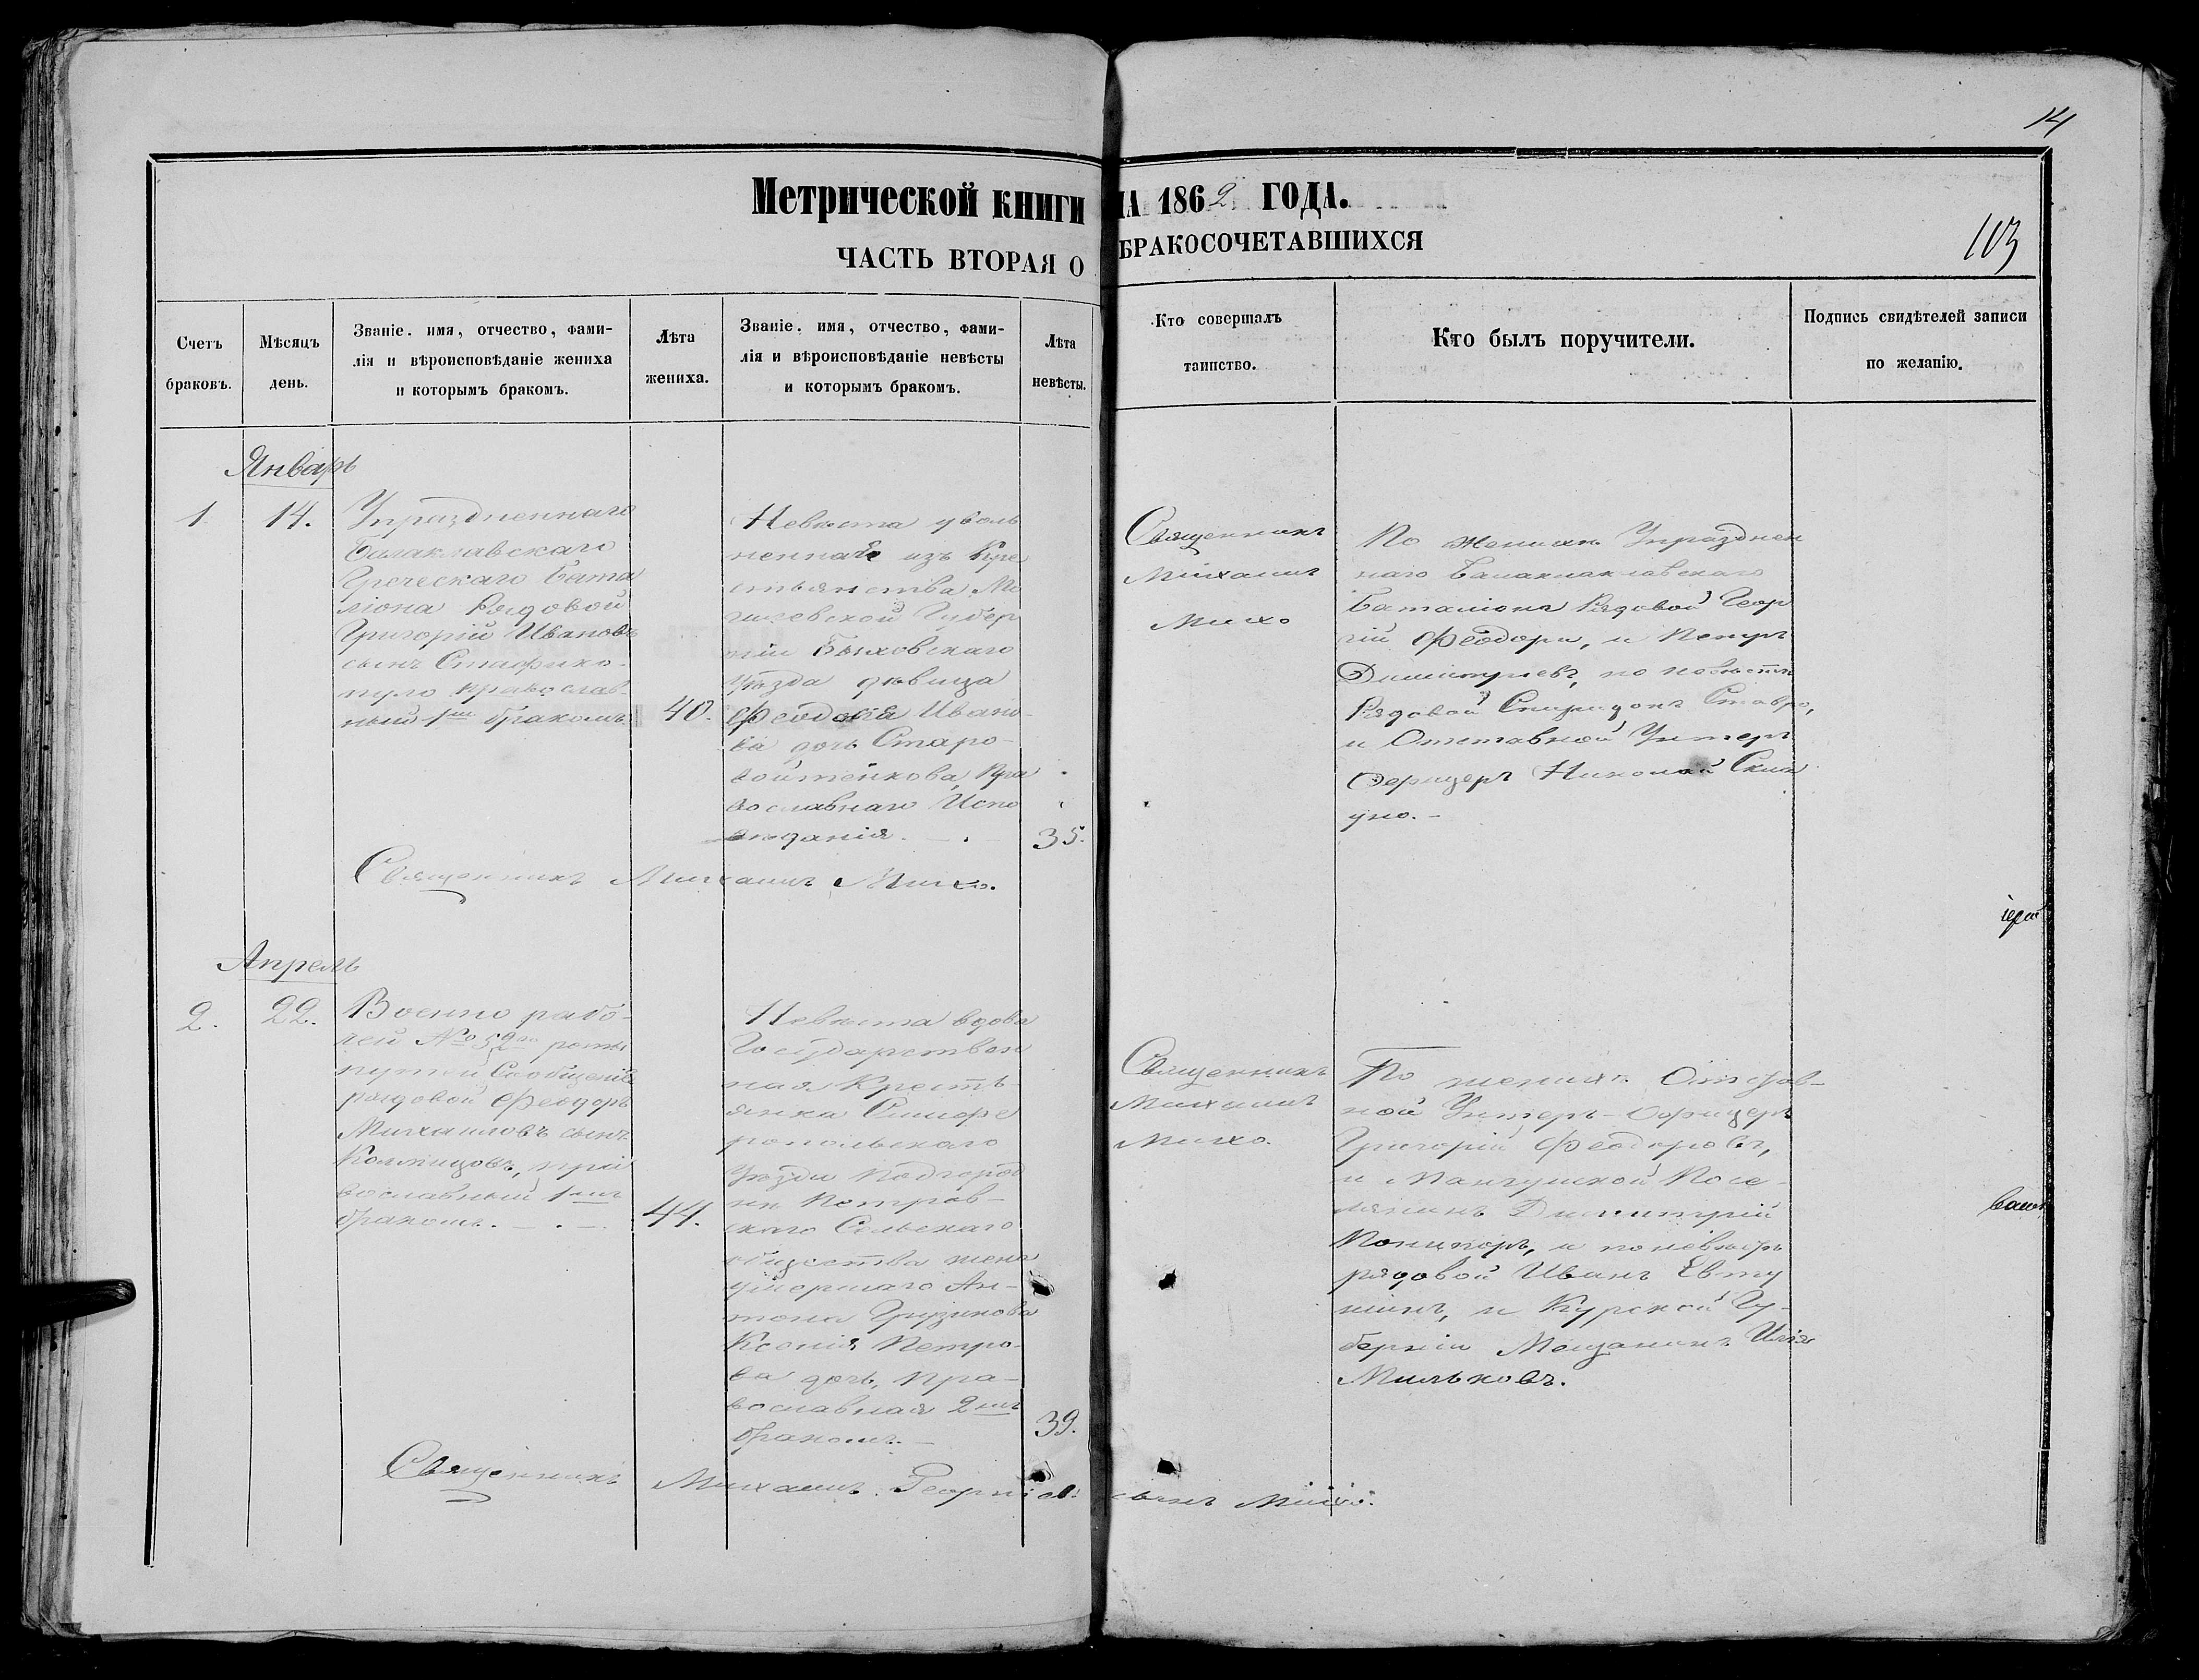 14
Метрической книги НА 1862 ГОДА.
103
ЧАСТЬ ВТОРАЯ О БРАКОСОЧЕТАВШИХСЯ
Счетъ
браковъ.
Мѣсяцъ
день.
Званіе. имя, отчество, фами-
лія и вѣроисповѣданіе жениха
и которымъ бракомъ.
Лѣта
жениха.
Званіе. имя, отчество, фами-
лія и вѣроисповѣданіе невѣсты
и которымъ бракомъ.
Лѣта
невѣсты.
Кто совершалъ
таинство.
Кто былъ поручители.
Подпись свидѣтелей записи
по желанію.
Январь
1.
14.
Упраздненнаго
Балаклавскаго
Греческаго Бата
ліона Рядовой
Григорій Ивановъ
сынъ
пуло православ-
ный 1мъ бракомъ
40.
Невѣста уволь
ненная изъ Кре
стьянства Мо
гилевской Губер
ніи Быховскаго
Уѣзда дѣвица
Феодосія Ивано-
ва дочь Старо-
войтенкова, Пра
вославнаго Испо
вѣданія.
35.
Священникъ
Михаилъ
Михо
По женихѣ Упразднен
наго
Баталіона Рядовой Геор
гій Феодори, и Петръ
Димитріевъ, по невѣстѣ
Рядовой Спиридонъ Ставро,
и Отставной Унтеръ
Офицеръ Николай
Священникъ Михаилъ Михо.
іерей
Апрель
2.
22.
Военно рабо-
чей № 52й роты
путей Сообщенія
рядовой Феодоръ
Михаиловъ сынъ
пра
вославный 1мъ
бракомъ.
44.
Невѣста вдова
Государствен
ная Кресть-
янка Симфе
ропольскаго
Уѣзда Подгород
не Петров-
скаго Сельскаго
общества жена
умершаго Ан-
тона Грузинова
Ксенія Петро-
ва дочь, пра-
вославная 2мъ
бракомъ.
39.
Священникъ
Михаилъ
Михо.
По женихѣ Отстав-
ной Унтеръ-Офицеръ
Григорій Феодоровъ,
и Мангушской Посе-
лянинъ Димитрій
и по невѣстѣ
рядовой Иванъ Евту
шинъ, и Курской Гу-
берніи Мещанинъ Илія
Мильковъ.
Священникъ Михаилъ Георгіевъ сынъ Михо.